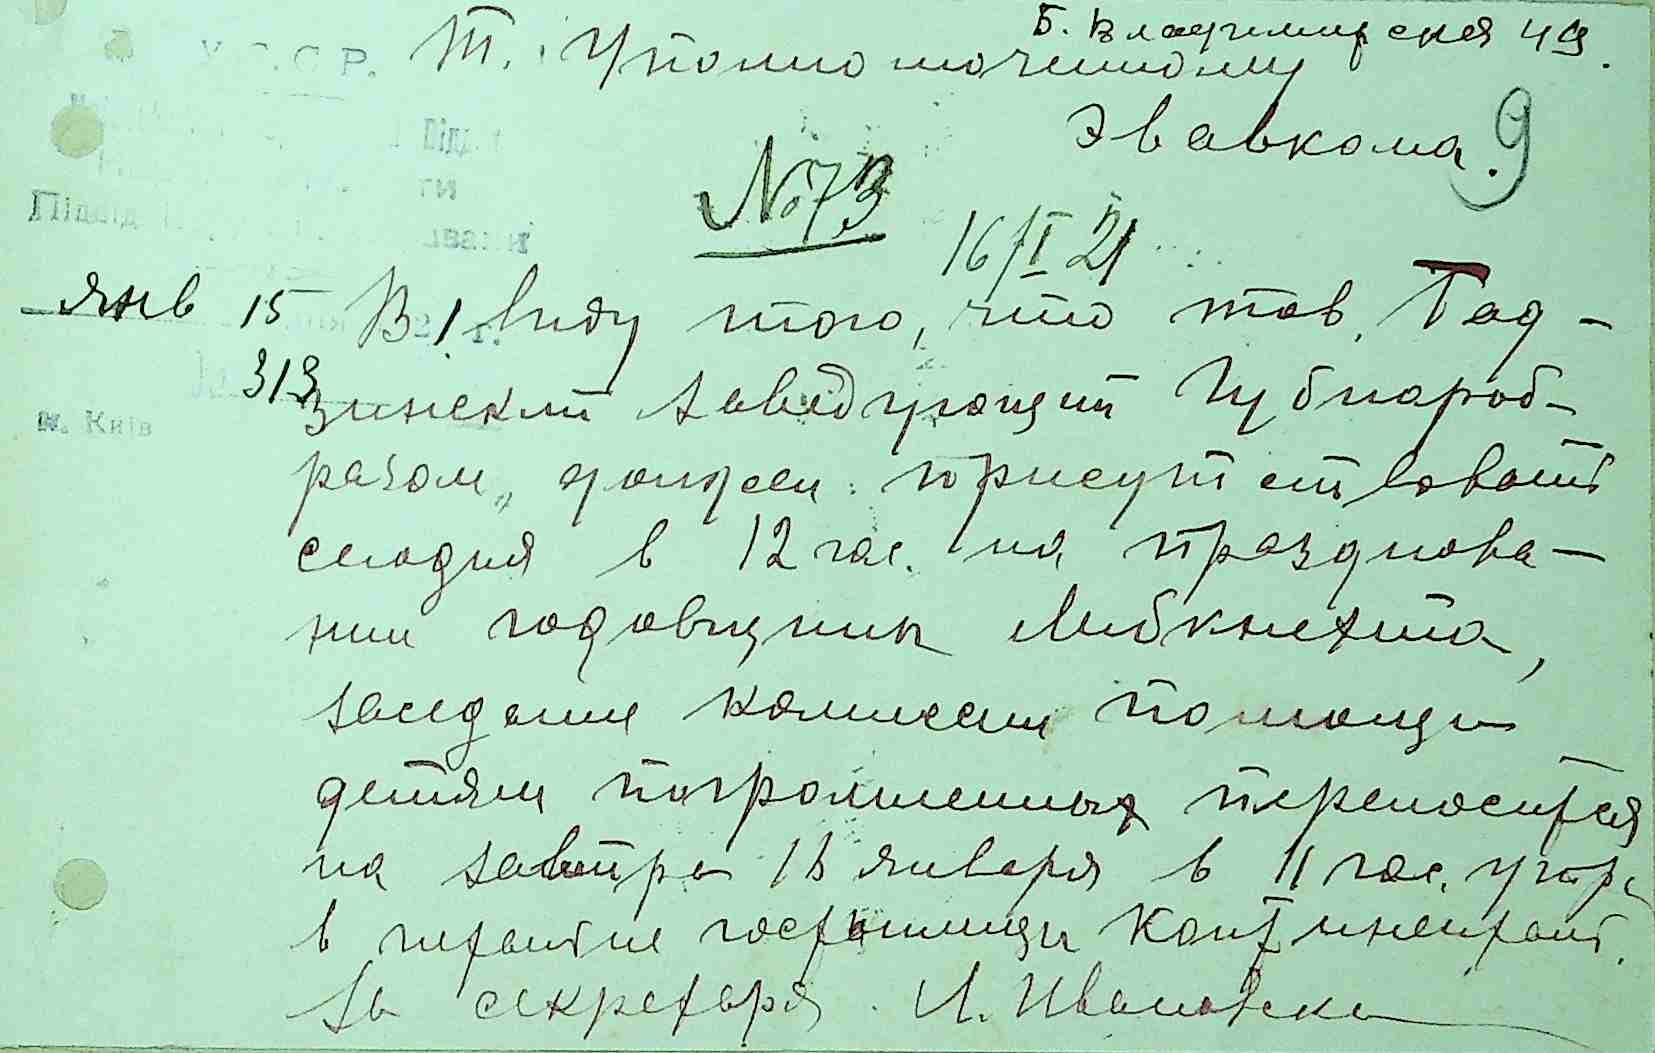 Б. Владимирская 49.
У.С.С.Р.
Т. Уполномоченному
Эвакома. 9
№ 73
16/I 21
Янв 15 В виду того, что тов. Гад-
313
зинский заведующий Губнароб-
м. Київ
разом, должен присутствовать
сегодня в 12 час. на празднова-
нии годовщины Либкнехта,
заседание комиссии помощи
детям погромленных переносится
на завтра 16 января в 11 час. утра
в читальне гостиницы Континенталь.
За секретаря Л. Ивановска